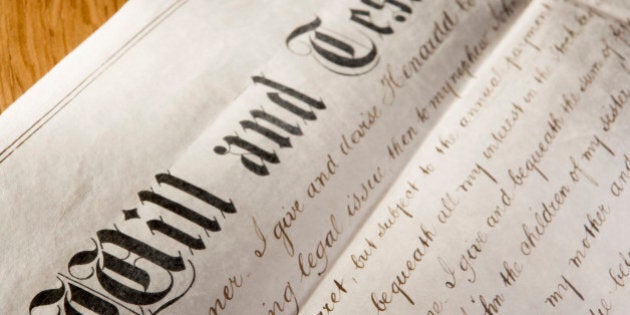 Will and Tes
ner. I give and devise Howardd to
ing legal issue then to my nephew
ret, but subject to the annual payment
bequeath all my interest in the
e. I give and bequeath the sum of
hn the children of my sister
my mother and